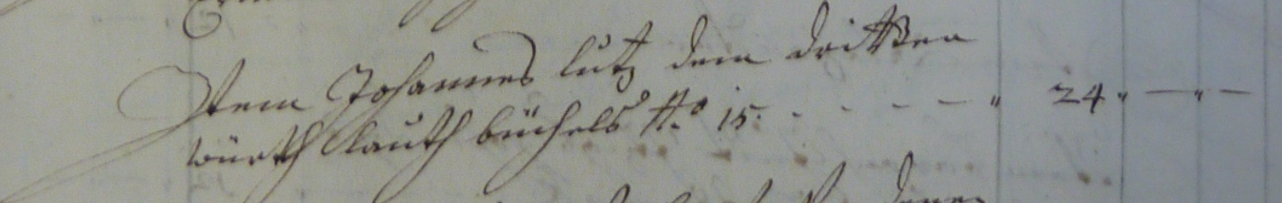 Item Johannes lutz dem dritten
würth lauth büchels No 15. - - - - " 24 " — " —